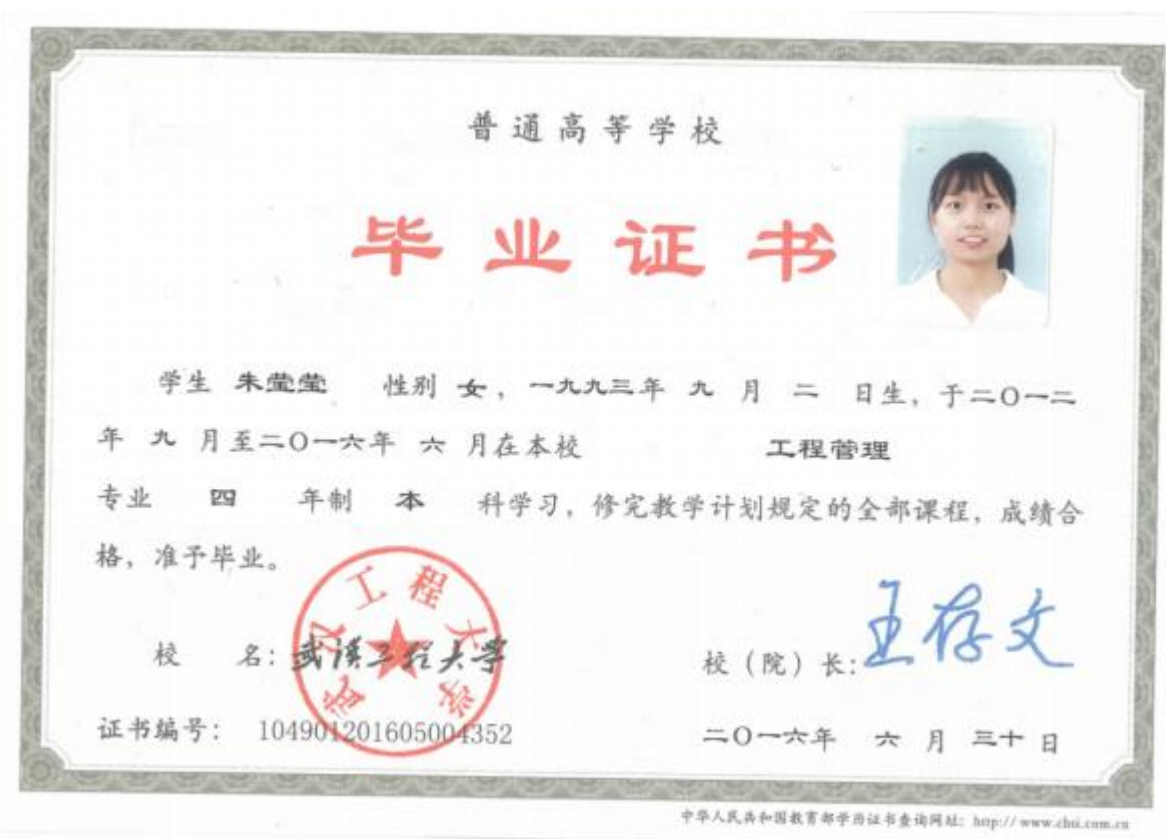 普通高等学校
毕业证书
学生 朱莹莹 性别 女，一九九三年 九 月 二 日生，于二〇一二
年 九 月至二〇一六年 六 月在本校 工程管理
专业 四 年制 本 科学习，修完教学计划规定的全部课程，成绩合
格，准予毕业。
武汉工程大学
校 名：武汉工程大学 校（院）长：王存文
证书编号： 104901201605004352 二〇一六年 六 月 三十 日
中华人民共和国教育部学历证书查询网址：http://www.chsi.com.cn